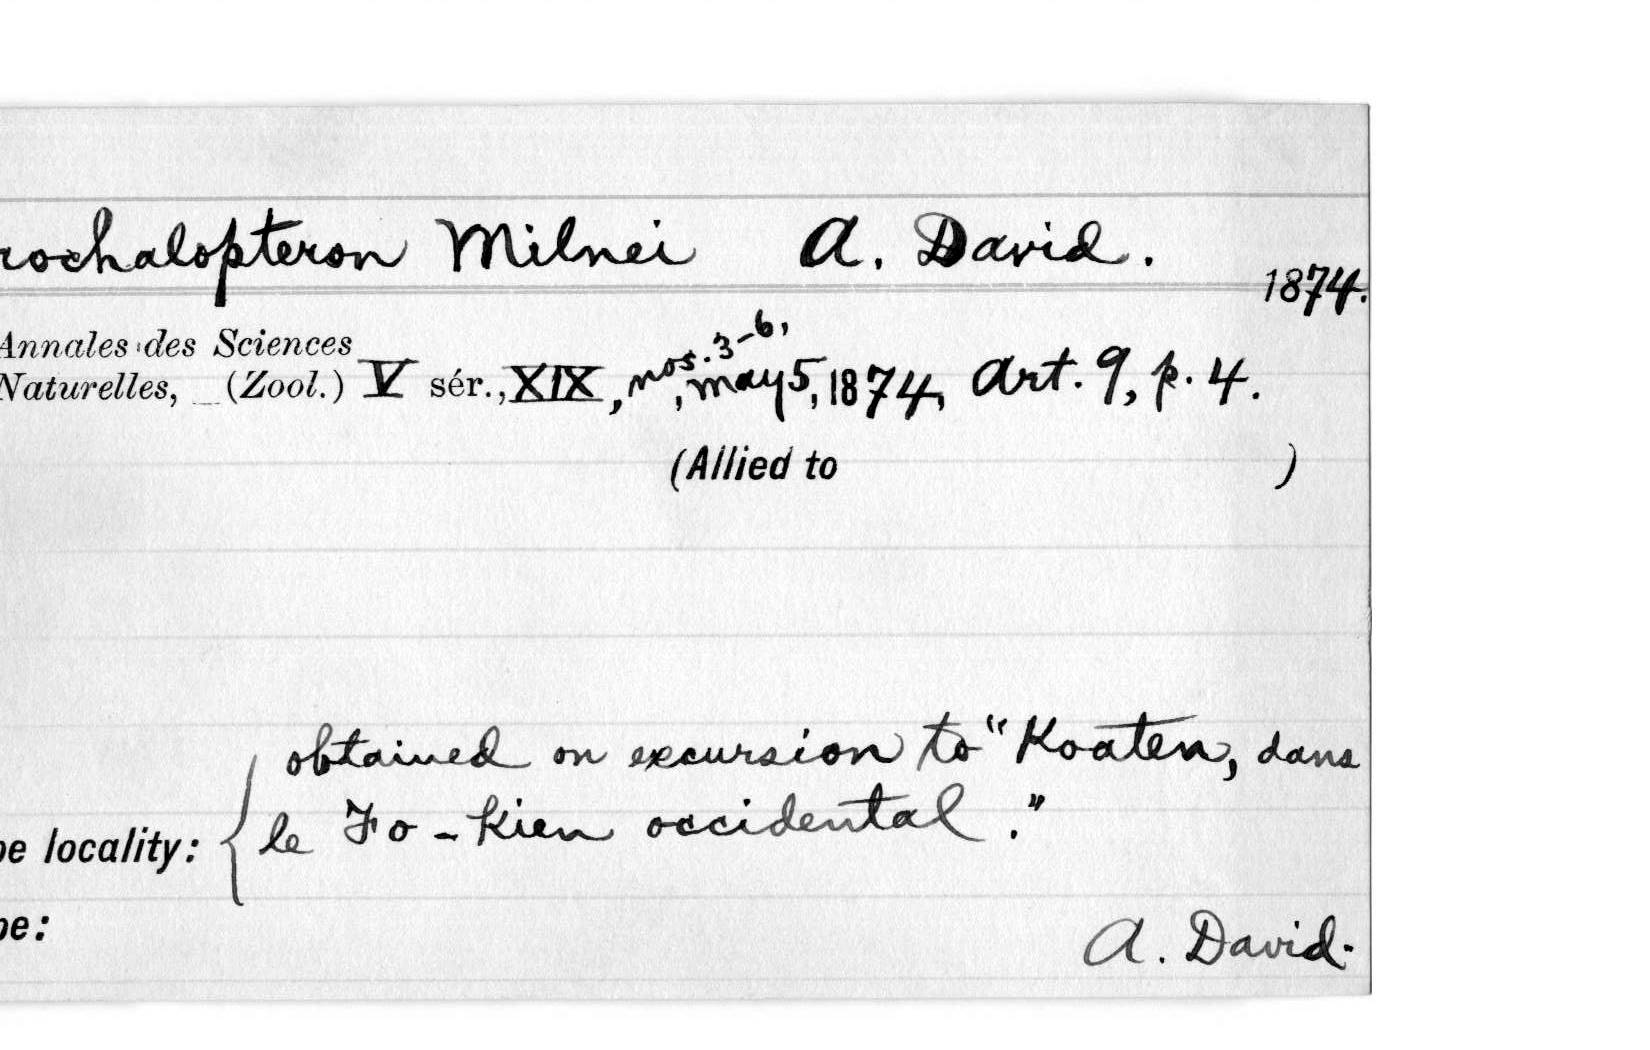 rochalopteron Milnei A. David.
1874.
Annales des Sciences
nos. 3-6,
Naturelles, _ (Zool.) V sér., XIX, , May 5, 1874, Art. 9, p. 4.
(Allied to )
obtained on excursion to "Koaten, dans
pe locality: { le Fo-Kien occidental."
pe:
A. David.